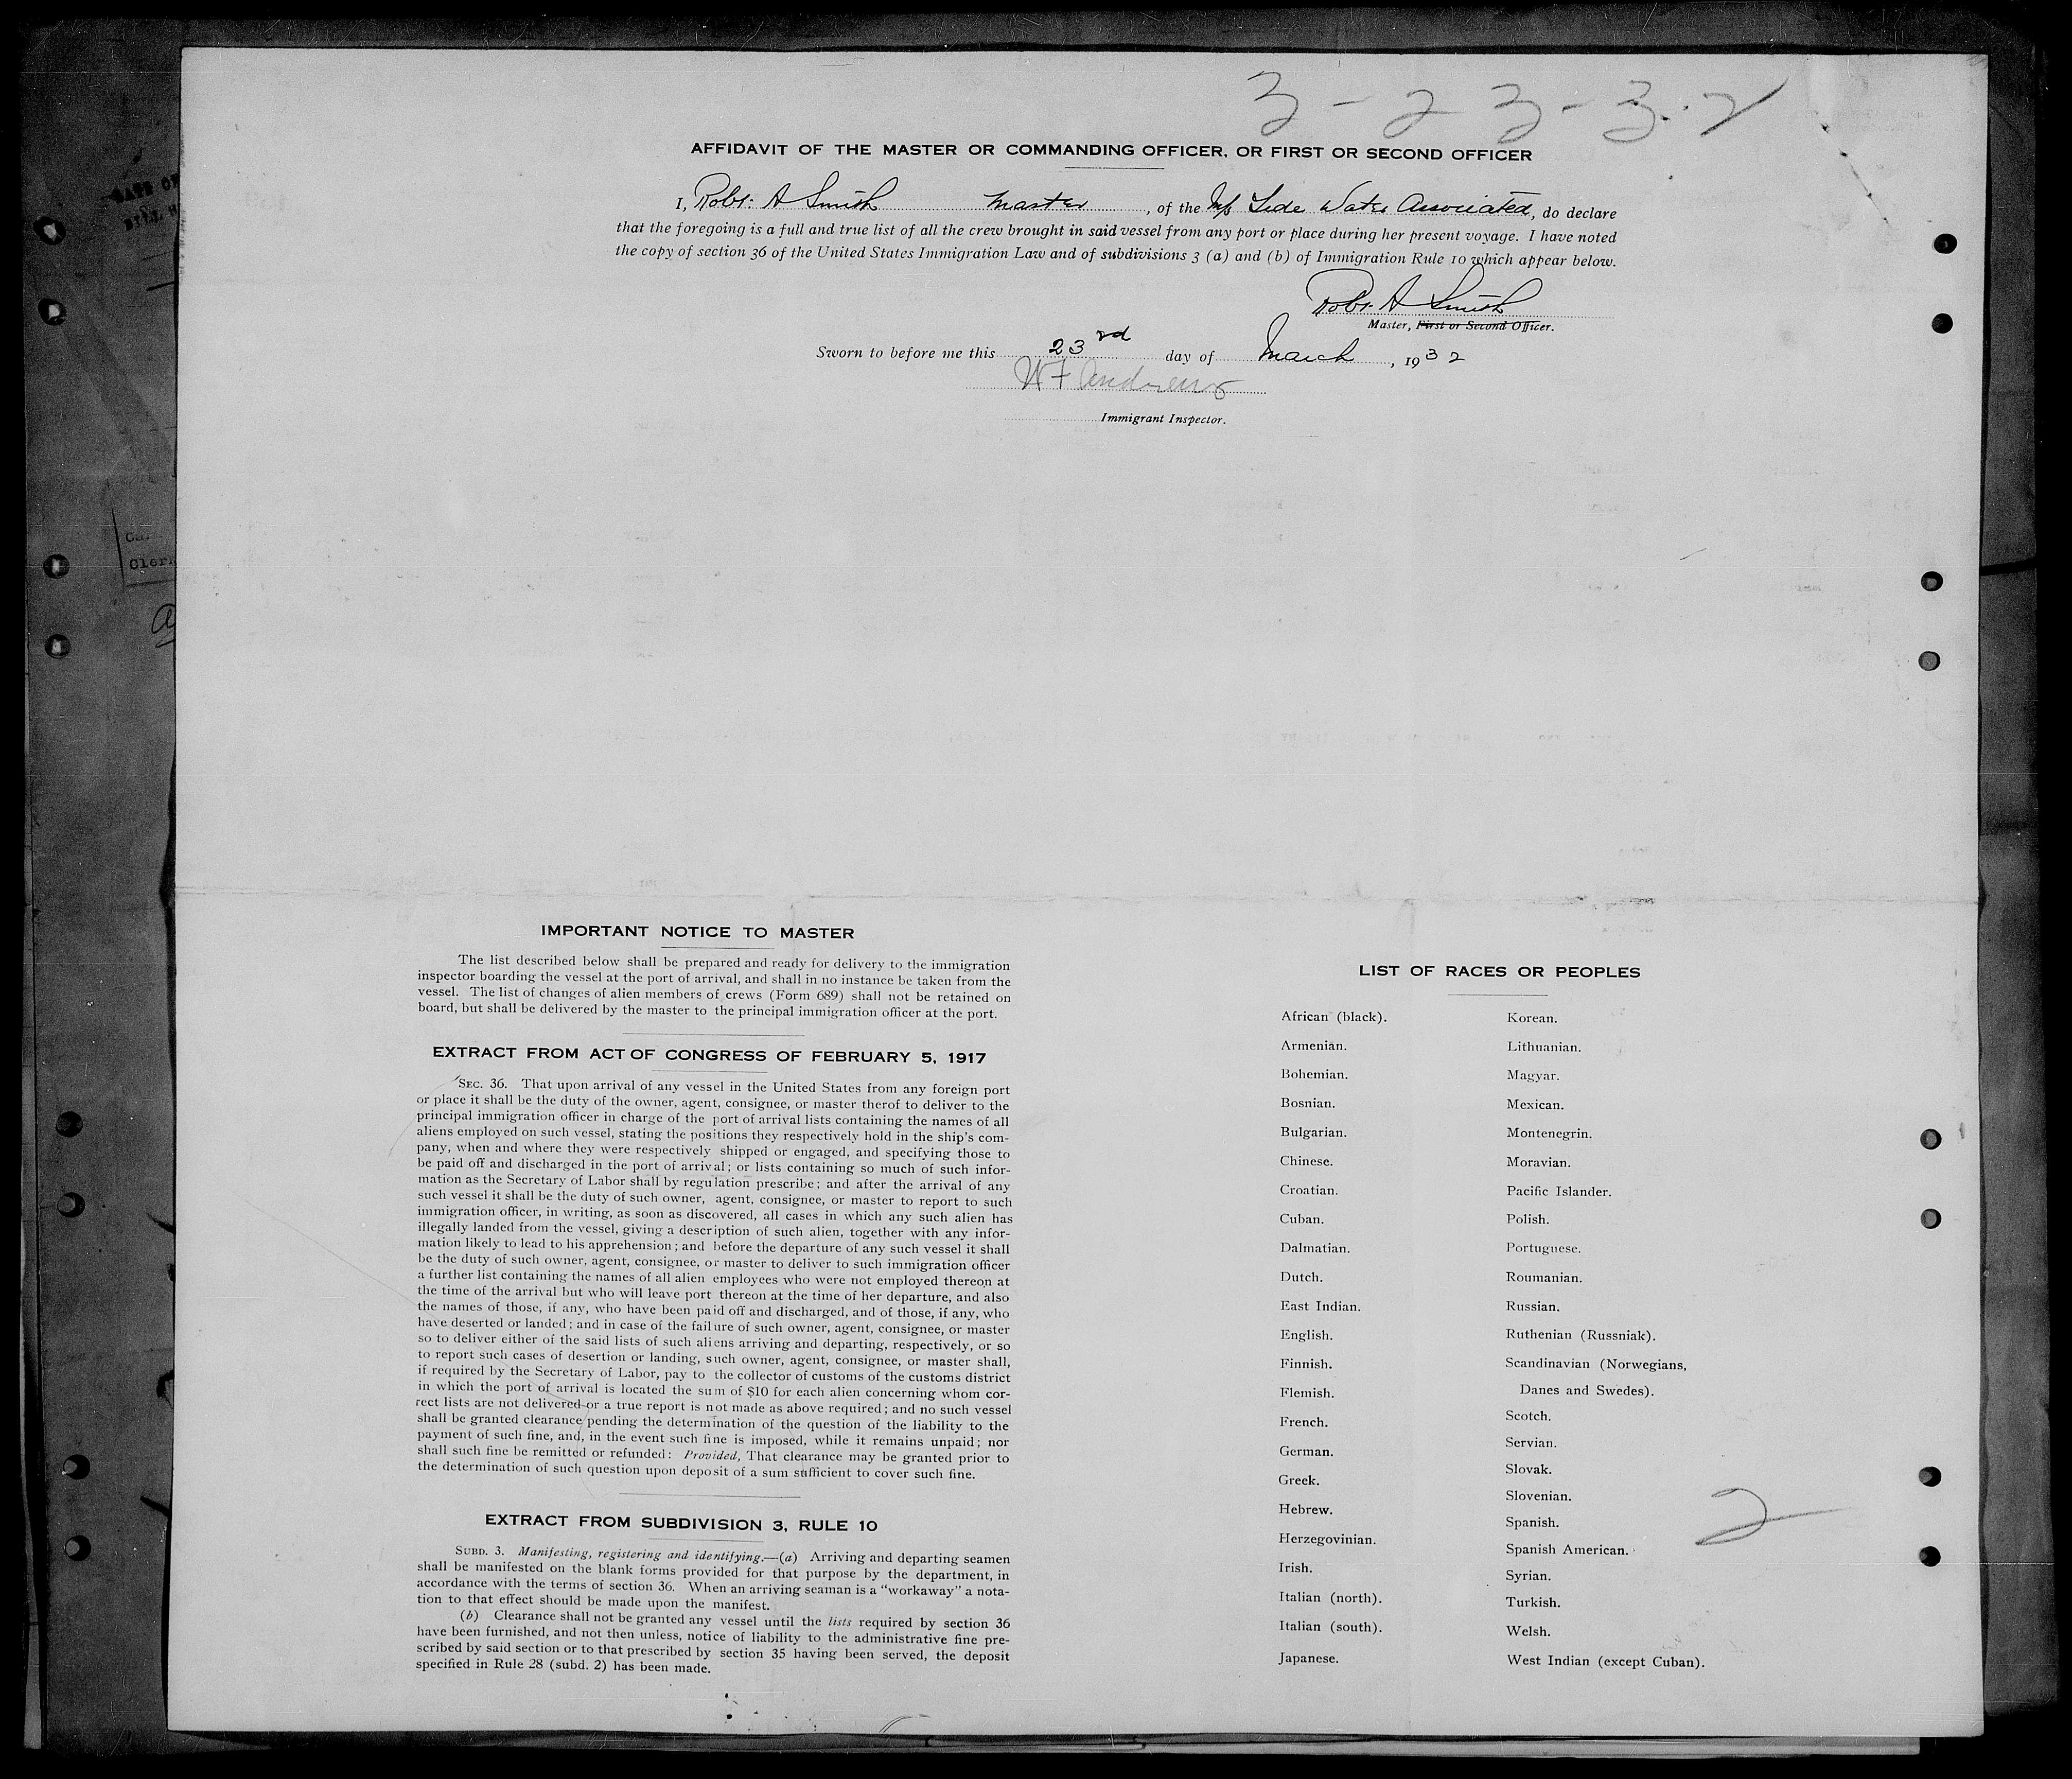 3-23-32
AFFIDAVIT OF THE MASTER OR COMMANDING OFFICER, OR FIRST OR SECOND OFFICER
I, Robt. A Smith Master, of the M/s Tide Water Associated, do declare
that the foregoing is a full and true list of all the crew brought in said vessel from any port or place during her present voyage. I have noted
the copy of section 36 of the United States Immigration Law and of subdivisions 3 (a) and (b) of Immigration Rule 10 which appear below.
Robt. A Smith
Master, First or Second Officer.
Sworn to before me this 23rd day of March, 1932
W F Andrews
Immigrant Inspector.
Clerk
IMPORTANT NOTICE TO MASTER
The list described below shall be prepared and ready for delivery to the immigration
inspector boarding the vessel at the port of arrival, and shall in no instance be taken from the
vessel. The list of changes of alien members of crews (Form 689) shall not be retained on
board, but shall be delivered by the master to the principal immigration officer at the port.
EXTRACT FROM ACT OF CONGRESS OF FEBRUARY 5, 1917
SEC. 36. That upon arrival of any vessel in the United States from any foreign port
or place it shall be the duty of the owner, agent, consignee, or master therof to deliver to the
principal immigration officer in charge of the port of arrival lists containing the names of all
aliens employed on such vessel, stating the positions they respectively hold in the ship's com-
pany, when and where they were respectively shipped or engaged, and specifying those to
be paid off and discharged in the port of arrival; or lists containing so much of such infor-
mation as the Secretary of Labor shall by regulation prescribe; and after the arrival of any
such vessel it shall be the duty of such owner, agent, consignee, or master to report to such
immigration officer, in writing, as soon as discovered, all cases in which any such alien has
illegally landed from the vessel, giving a description of such alien, together with any infor-
mation likely to lead to his apprehension; and before the departure of any such vessel it shall
be the duty of such owner, agent, consignee, or master to deliver to such immigration officer
a further list containing the names of all alien employees who were not employed thereon at
the time of the arrival but who will leave port thereon at the time of her departure, and also
the names of those, if any, who have been paid off and discharged, and of those, if any, who
have deserted or landed; and in case of the failure of such owner, agent, consignee, or master
so to deliver either of the said lists of such aliens arriving and departing, respectively, or so
to report such cases of desertion or landing, such owner, agent, consignee, or master shall,
if required by the Secretary of Labor, pay to the collector of customs of the customs district
in which the port of arrival is located the sum of $10 for each alien concerning whom cor-
rect lists are not delivered or a true report is not made as above required; and no such vessel
shall be granted clearance pending the determination of the question of the liability to the
payment of such fine, and, in the event such fine is imposed, while it remains unpaid; nor
shall such fine be remitted or refunded: Provided, That clearance may be granted prior to
the determination of such question upon deposit of a sum sufficient to cover such fine.
EXTRACT FROM SUBDIVISION 3, RULE 10
SUBD. 3. Manifesting, registering and identifying.—(a) Arriving and departing seamen
shall be manifested on the blank forms provided for that purpose by the department, in
accordance with the terms of section 36. When an arriving seaman is a "workaway" a nota-
tion to that effect should be made upon the manifest.
(b) Clearance shall not be granted any vessel until the lists required by section 36
have been furnished, and not then unless, notice of liability to the administrative fine pre-
scribed by said section or to that prescribed by section 35 having been served, the deposit
specified in Rule 28 (subd. 2) has been made.
LIST OF RACES OR PEOPLES
African (black).
Armenian.
Bohemian.
Bosnian.
Bulgarian.
Chinese.
Croatian.
Cuban.
Dalmatian.
Dutch.
East Indian.
English.
Finnish.
Flemish.
French.
German.
Greek.
Hebrew.
Herzegovinian.
Irish.
Italian (north).
Italian (south).
Japanese.
Korean.
Lithuanian.
Magyar.
Mexican.
Montenegrin.
Moravian.
Pacific Islander.
Polish.
Portuguese.
Roumanian.
Russian.
Ruthenian (Russniak).
Scandinavian (Norwegians,
Danes and Swedes).
Scotch.
Servian.
Slovak.
Slovenian.
Spanish.
Spanish American.
Syrian.
Turkish.
Welsh.
West Indian (except Cuban).
2